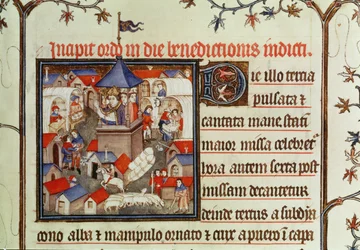 Incipit ordo in die benedictionis indicti.
Die illo tercia
pulsata ⁊
cantata mane stati
maior missa celebret
hora autem sexta post
missam decantetur
deinde tercius a subdia
cono alba ⁊ manipulo ornato ⁊ crux a puero ī capa